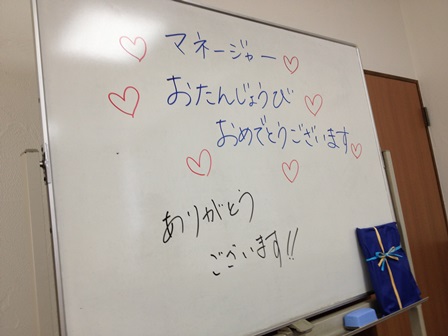 マネージャー
おたんじょうび
おめでとうございます
ありがとう
ございます!!